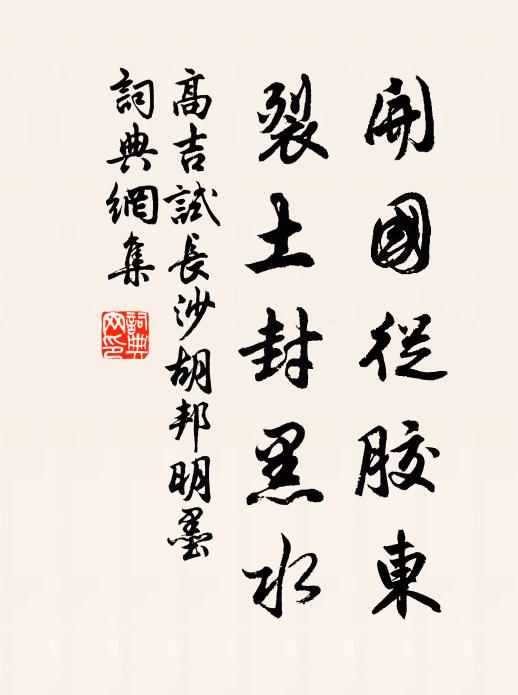 開國從膠東
裂土封黑水
高吉試長沙胡邦明墨
詞典網集
詞典
网印